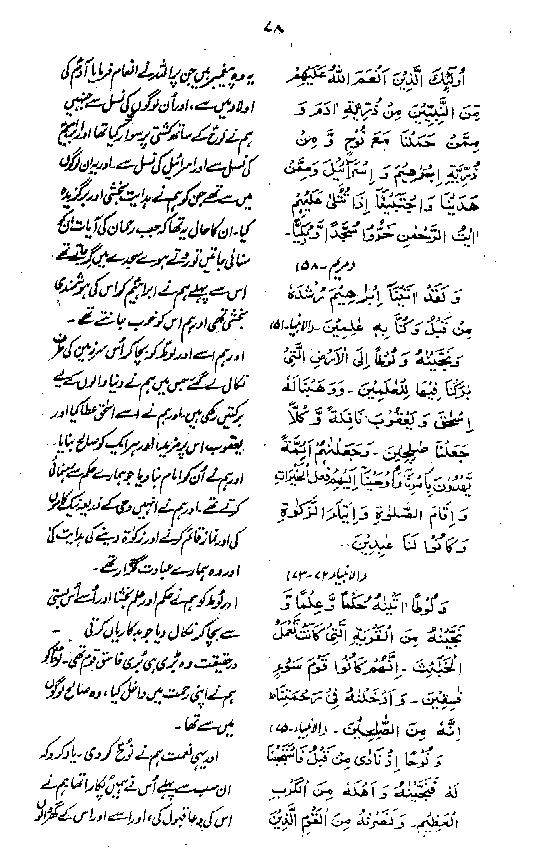 ۷۸
اُولٰٓئِكَ الَّذِينَ اَنْعَمَ اللّٰهُ عَلَيْهِمْ
مِّنَ النَّبِيِّينَ مِنْ ذُرِّيَّةِ اٰدَمَ وَ
مِمَّنْ حَمَلْنَا مَعَ نُوْحٍ وَّ مِنْ
ذُرِّيَّةِ اِبْرٰهِيْمَ وَ اِسْرَآئِيْلَ وَمِمَّنْ
هَدَيْنَا وَ اجْتَبَيْنَا اِذَا تُتْلٰى عَلَيْهِمْ
اٰيٰتُ الرَّحْمٰنِ خَرُّوْا سُجَّدًا وَّبُكِيًّا۔
(مریم۔۵۸)
وَ لَقَدْ اٰتَيْنَآ اِبْرٰهِيْمَ رُشْدَهٗ
مِنْ قَبْلُ وَ كُنَّا بِهٖ عٰلِمِيْنَ۔ (الانبیاء۔۵۱)
وَ نَجَّيْنٰهُ وَ لُوْطًا اِلَى الْاَرْضِ الَّتِيْ
بٰرَكْنَا فِيْهَا لِلْعٰلَمِيْنَ۔ وَوَهَبْنَا لَهٗ
اِسْحٰقَ وَ يَعْقُوْبَ نَافِلَةً وَّ كُلًّا
جَعَلْنَا صٰلِحِيْنَ۔ وَجَعَلْنٰهُمْ اَئِمَّةً
يَّهْدُوْنَ بِاَمْرِنَا وَاَوْحَيْنَآ اِلَيْهِمْ فِعْلَ الْخَيْرَاتِ
وَ اِقَامَ الصَّلٰوةِ وَ اِيْتَآءَ الزَّكٰوةِ
وَ كَانُوْا لَنَا عٰبِدِيْنَ۔
(الانبیاء ۷۲۔۷۳)
وَ لُوْطًا اٰتَيْنٰهُ حُكْمًا وَّ عِلْمًا وَّ
نَجَّيْنٰهُ مِنَ الْقَرْيَةِ الَّتِيْ كَانَتْ تَّعْمَلُ
الْخَبٰٓئِثَ۔ اِنَّهُمْ كَانُوْا قَوْمَ سَوْءٍ
فٰسِقِيْنَ۔ وَ اَدْخَلْنٰهُ فِيْ رَحْمَتِنَا
اِنَّهٗ مِنَ الصّٰلِحِيْنَ۔ (الانبیاء۔۷۵)
وَ نُوْحًا اِذْ نَادٰى مِنْ قَبْلُ فَاسْتَجَبْنَا
لَهٗ فَنَجَّيْنٰهُ وَ اَهْلَهٗ مِنَ الْكَرْبِ
الْعَظِيْمِ۔ وَ نَصَرْنٰهُ مِنَ الْقَوْمِ الَّذِيْنَ
یہ وہ پیغمبر ہیں جن پر اللہ نے انعام فرمایا آدم کی
اولاد میں سے، اور ان لوگوں کی نسل سے جنہیں
ہم نے نوح کے ساتھ کشتی پر سوار کیا تھا اور ابراہیم
کی نسل سے اور اسرائیل کی نسل سے۔ اور یہ ان لوگوں
میں سے تھے جن کو ہم نے ہدایت بخشی اور برگزیدہ
کیا۔ ان کا حال یہ تھا کہ جب رحمان کی آیات ان کو
سنائی جاتیں تو روتے ہوئے سجدے میں گر جاتے تھے
اس سے پہلے ہم نے ابراہیم کو اس کی ہوشمندی
بخشی تھی اور ہم اس کو خوب جانتے تھے۔
اور ہم اسے اور لوط کو بچا کر اس سرزمین کی طرف
نکال لے گئے جس میں ہم نے دنیا والوں کے لیے
برکتیں رکھی ہیں۔ اور ہم نے اسے اسحٰق عطا کیا اور
یعقوب اس پر مزید۔ اور ہر ایک کو صالح بنایا۔
اور ہم نے اُن کو امام بنا دیا جو ہمارے حکم سے رہنمائی
کرتے تھے۔ اور ہم نے انہیں وحی کے ذریعہ نیک کاموں
کی اور نماز قائم کرنے اور زکوٰۃ دینے کی ہدایت کی
اور وہ ہمارے عبادت گزار تھے۔
اور لوط کو ہم نے حکم اور علم بخشا اور اُسے اُس بستی
سے بچا کر نکال دیا جو بدکاریاں کرتی
درحقیقت وہ بڑی ہی بُری فاسق قوم تھی۔ لوط کو
ہم نے اپنی رحمت میں داخل کیا، وہ صالح لوگوں
میں سے تھا۔
اور یہی نعمت ہم نے نوح کو دی۔ یاد کرو کہ
ان سب سے پہلے اُس نے ہمیں پکارا تھا ہم نے
اس کی دعا قبول کی، اور اسے اور اس کے گھر والوں